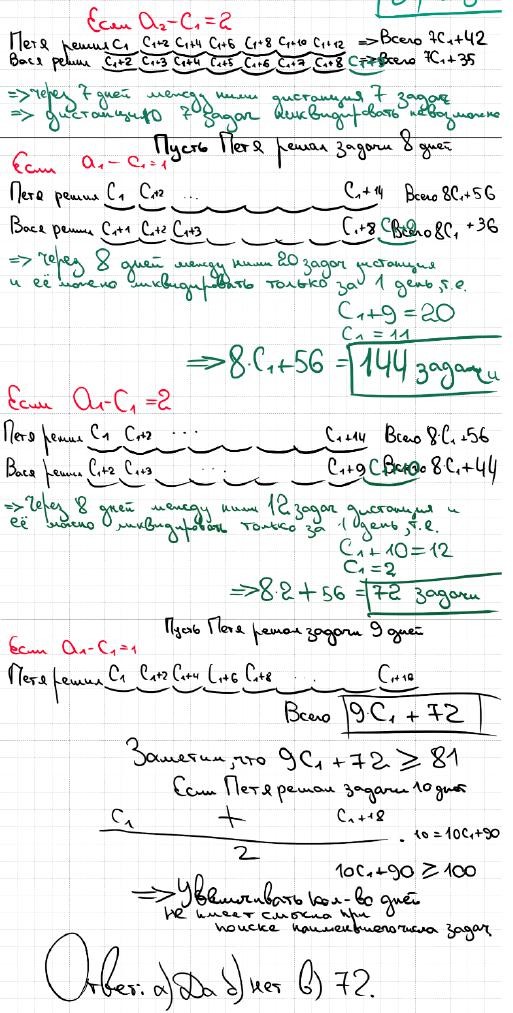 Если a₂-C₁=2
Петя решил C₁ C₁+2 C₁+4 C₁+6 C₁+8 C₁+10 C₁+12 =>Всего 7C₁+42
Вася решил C₁+2 C₁+3 C₁+4 C₁+5 C₁+6 C₁+7 C₁+8 =>Всего 7C₁+35
=>через 7 дней между ними дистанция 7 задач
=> дистанцию 7 задач ликвидировать невозможно
Пусть Петя решал задачи 8 дней
Если a₁-C₁=1
Петя решил C₁ C₁+2 ... C₁+14 Всего 8C₁+56
Вася решил C₁+1 C₁+2 C₁+3 C₁+8 Всего 8C₁+36
=> через 8 дней между ними 20 задач дистанция
и её можно ликвидировать только за 1 день, т.е.
C₁+9=20
C₁=11
=>8·C₁+56=144 задачи
Если a₁-C₁=2
Петя решил C₁ C₁+2 ... C₁+14 Всего 8·C₁+56
Вася решил C₁+2 C₁+3 ... C₁+9 Всего 8·C₁+44
=>Через 8 дней между ними 12 задач дистанция и
её можно ликвидировать только за 1 день, т.е.
C₁+10=12
C₁=2
=>8·2+56=72 задачи
Пусть Петя решал задачи 9 дней
Если a₁-C₁=1
Петя решил C₁ C₁+2 C₁+4 C₁+6 C₁+8 ... C₁+16
Всего 9·C₁+72
Заметим, что 9C₁+72⩾81
Если Петя решал задачи 10 дней
C₁ + C₁+18
2 ·10=10C₁+90
10C₁+90⩾100
=>Увеличивать кол-во дней
не имеет смысла при
поиске наименьшего числа задач
Ответ: а) Да б) нет в) 72.